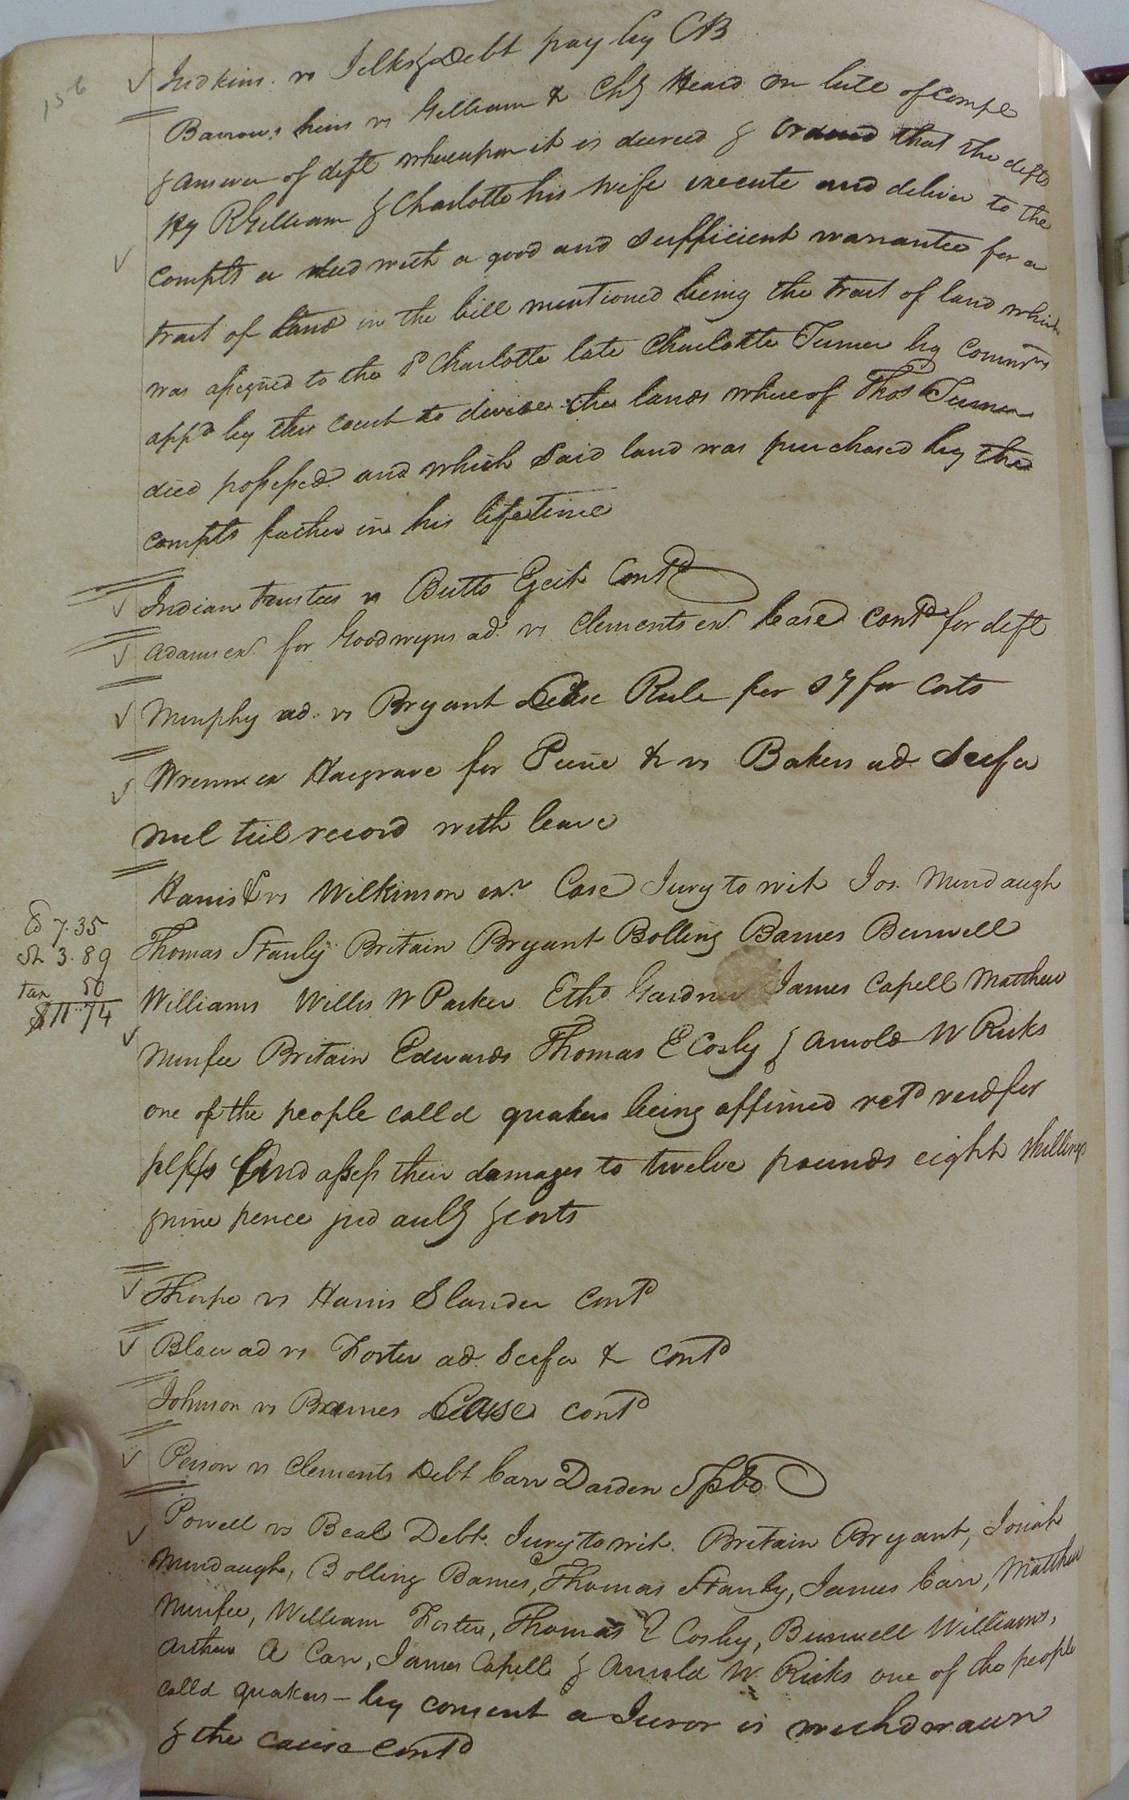 156
Judkins vs Jelks & Debt pay by CB
Barrows heirs vs Gilliam & Chy Heard on bill of compl
& answer of deft whereupon it is decreed & ordered that the defts
Hy R Gilliam & Charlotte his wife execute and deliver to the
complts a deed with a good and sufficient warrantee for a
tract of land in the bill mentioned being the tract of land which
was assigned to the sd Charlotte late Charlotte Turner by commrs
appd by this court to divide the lands whereof Thos Turner
died possessed and which said land was purchased by the
complts father in his lifetime
Indian trustees vs Butts Eject Contd
Adams ex. for Goodwyns ad. vs Clements ex. Case contd for deft
Murphy ad. vs Bryant Case Rule for S7 for Costs
Wrenn ex Hargrave for Peine &c vs Bakers ad Scifa
nul tiel record with leave
Harris & vs Wilkinson exr. Case Jury to wit Jos. Murdaugh
Thomas Stanly Britain Bryant Bolling Barnes Burwell
Williams Willis W Parker Ethd Gardner James Capell Matthew
Murfee Britain Edwards Thomas E Cosby & Arnold W Ricks
one of the people calld quakers being affirmed retd verd for
plffs and assess their damages to twelve pounds eight shillings
& nine pence jud &costs
Cd 7.35
Sh 3.89
tax 50
$11.74
Thorpe vs Harris Slander contd
Blow ad vs Foster ad. Scifa & contd
Johnson vs Barnes Case contd
Person vs Clements Debt Carr Darden Spbd
Powell vs Beal Debt. Jury to wit. Britain Bryant, Josiah
Murdaugh, Bolling Barnes, Thomas Stanly, James Carr, Matthew
Murfee, William Foster, Thomas E Cosby, Burwell Williams,
Arthur A Carr, James Capell & Arnold W. Ricks one of the people
calld quakers – by consent a Juror is withdrawn
& the cause contd